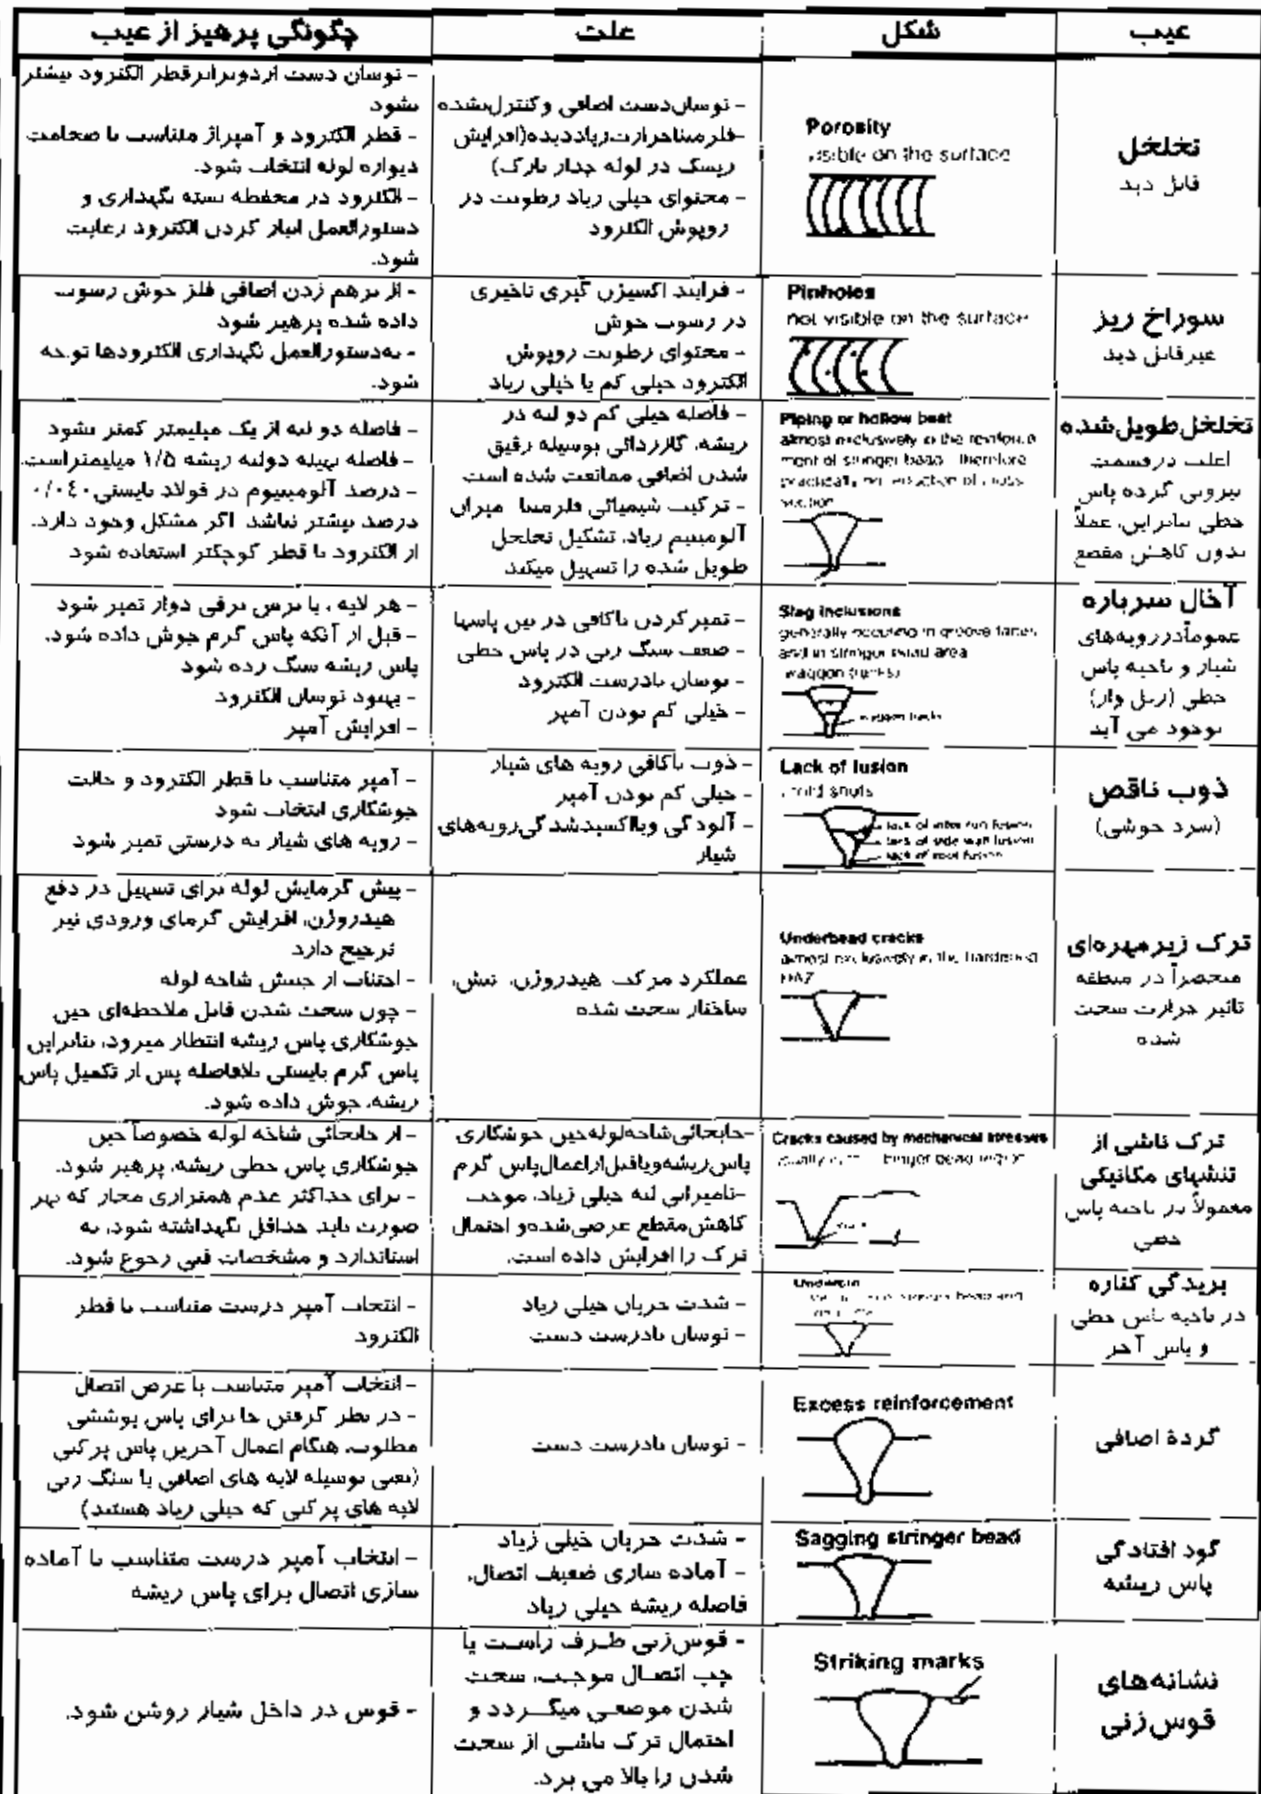 عیب
شکل
علت
چگونگی پرهیز از عیب
تخلخل
قابل دید
Porosity
visible on the surface
- نوسان دست اضافی و کنترل نشده
- فلز مبنا حرارت زیاد دیده (افزایش
ریسک در لوله جدار نازک)
- محتوای خیلی زیاد رطوبت در
روپوش الکترود
- نوسان دست از دو برابر قطر الکترود بیشتر
نشود
- قطر الکترود و آمپراژ متناسب با ضخامت
دیواره لوله انتخاب شود.
- الکترود در محفظه بسته نگهداری و
دستورالعمل انبار کردن الکترود رعایت
شود.
سوراخ ریز
غیرقابل دید
Pinholes
not visible on the surface
- فرایند اکسیژن گیری تاخیری
در رسوب جوش
- محتوای رطوبت روپوش
الکترود خیلی کم یا خیلی زیاد
- از برهم زدن اضافی فلز جوش رسوب
داده شده پرهیز شود
- به دستورالعمل نگهداری الکترودها توجه
شود.
تخلخل طویل شده
اغلب در قسمت
بیرونی گرده پاس
خطی بنابراین، عملاً
بدون کاهش مقطع
Piping or hollow beat
almost exclusively in the reinforce
ment of stringer bead. Therefore
practically no reduction of cross
section
- فاصله خیلی کم دو لبه در
ریشه، گاززدائی بوسیله رقیق
شدن اضافی ممانعت شده است
- ترکیب شیمیائی فلزمبنا میزان
آلومینیم زیاد، تشکیل تخلخل
طویل شده را تسهیل میکند
- فاصله دو لبه از یک میلیمتر کمتر نشود
- فاصله بهینه دولبه ریشه ۱/۵ میلیمتر است.
- درصد آلومینیوم در فولاد بایستی ۰/۰۴۰
درصد بیشتر نباشد اگر مشکل وجود دارد.
از الکترود با قطر کوچکتر استفاده شود
آخال سرباره
عموماً در رویه‌های
شیار و ناحیه پاس
خطی (ریل وار)
بوجود می آید
Slag inclusions
generally occuring in groove faces
and in stringer bead area
waggon tracks
- تمیز کردن ناکافی در بین پاسها
- ضعف سنگ زنی در پاس خطی
- نوسان نادرست الکترود
- خیلی کم بودن آمپر
- هر لایه ، با برس برقی دوار تمیز شود
- قبل از آنکه پاس گرم جوش داده شود،
پاس ریشه سنگ زده شود
- بهبود نوسان الکترود
- افزایش آمپر
ذوب ناقص
(سرد جوشی)
Lack of fusion
cold shuts
lack of inter run fusion
lack of side wall fusion
lack of root fusion
- ذوب ناکافی رویه های شیار
- خیلی کم بودن آمپر
- آلودگی و یا اکسید شدگی رویه‌های
شیار
- آمپر متناسب با قطر الکترود و حالت
جوشکاری انتخاب شود
- رویه های شیار به درستی تمیز شود
ترک زیر مهره‌ای
منحصراً در منطقه
تاثیر حرارت سخت
شده
Underbead cracks
almost exclusively in the hardened
HAZ
عملکرد مرکب هیدروژن، تنش،
ساختار سخت شده
- پیش گرمایش لوله برای تسهیل در دفع
هیدروژن، افزایش گرمای ورودی نیز
ترجیح دارد
- اجتناب از جنبش شاخه لوله
- چون سخت شدن قابل ملاحظه‌ای حین
جوشکاری پاس ریشه انتظار میرود، بنابراین
پاس گرم بایستی بلافاصله پس از تکمیل پاس
ریشه، جوش داده شود.
ترک ناشی از
تنشهای مکانیکی
معمولاً در ناحیه پاس
خطی
Cracks caused by mechanical stresses
usually in stringer bead region
- جابجائی شاخه لوله حین جوشکاری
پاس ریشه و یا قبل از اعمال پاس گرم
- نامیزانی لبه خیلی زیاد، موجب
کاهش مقطع عرضی شده و احتمال
ترک را افزایش داده است.
- از جابجائی شاخه لوله خصوصاً حین
جوشکاری پاس خطی ریشه، پرهیز شود.
- برای حداکثر عدم همترازی مجاز که بهر
صورت باید حداقل نگهداشته شود، به
استاندارد و مشخصات فنی رجوع شود.
بریدگی کناره
در ناحیه پاس خطی
و پاس آخر
- شدت جریان خیلی زیاد
- نوسان نادرست دست
- انتخاب آمپر درست متناسب با قطر
الکترود
گردۀ اضافی
Excess reinforcement
- نوسان نادرست دست
- انتخاب آمپر متناسب با عرض اتصال
- در نظر گرفتن جا برای پاس پوششی
مطلوب، هنگام اعمال آخرین پاس پرکنی
(یعنی بوسیله لایه های اضافی یا سنگ زنی
لایه های پرکنی که خیلی زیاد هستند)
گود افتادگی
پاس ریشه
Sagging stringer bead
- شدت جریان خیلی زیاد
- آماده سازی ضعیف اتصال،
فاصله ریشه خیلی زیاد
- انتخاب آمپر درست متناسب با آماده
سازی اتصال برای پاس ریشه
نشانه‌های
قوس‌زنی
Striking marks
- قوس‌زنی طرف راست یا
چپ اتصال موجب، سخت
شدن موضعی میگردد و
احتمال ترک ناشی از سخت
شدن را بالا می برد.
- قوس در داخل شیار روشن شود.